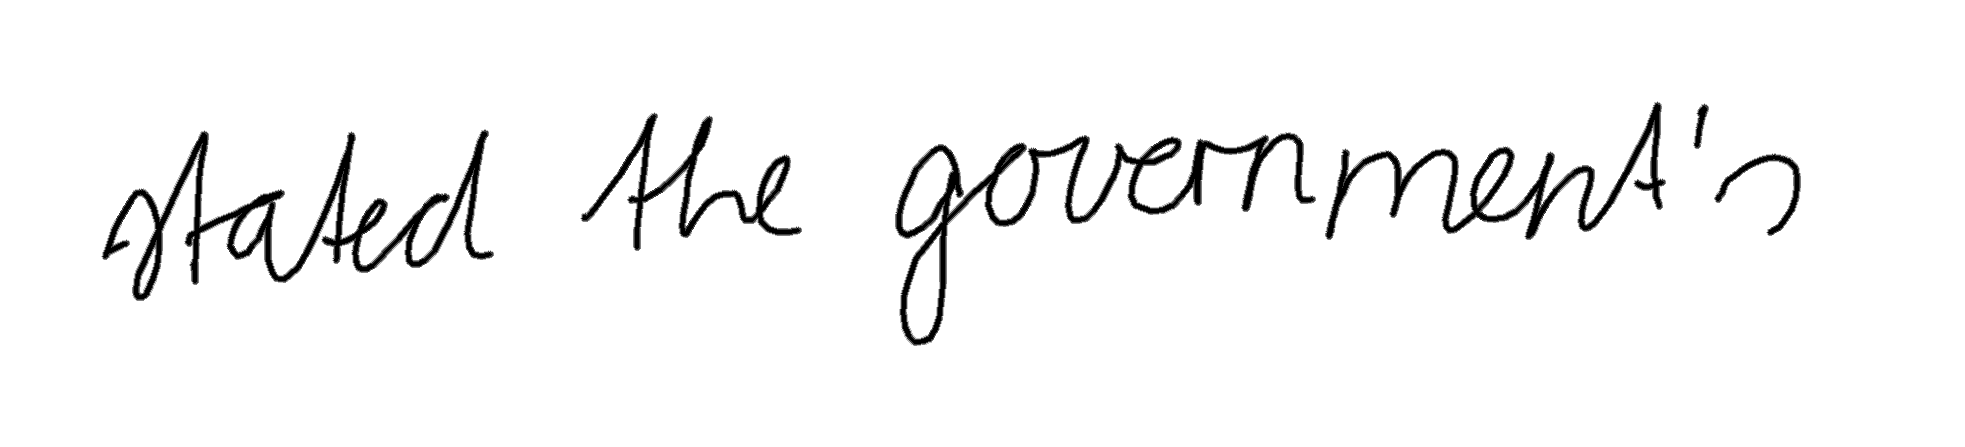 stated the government's